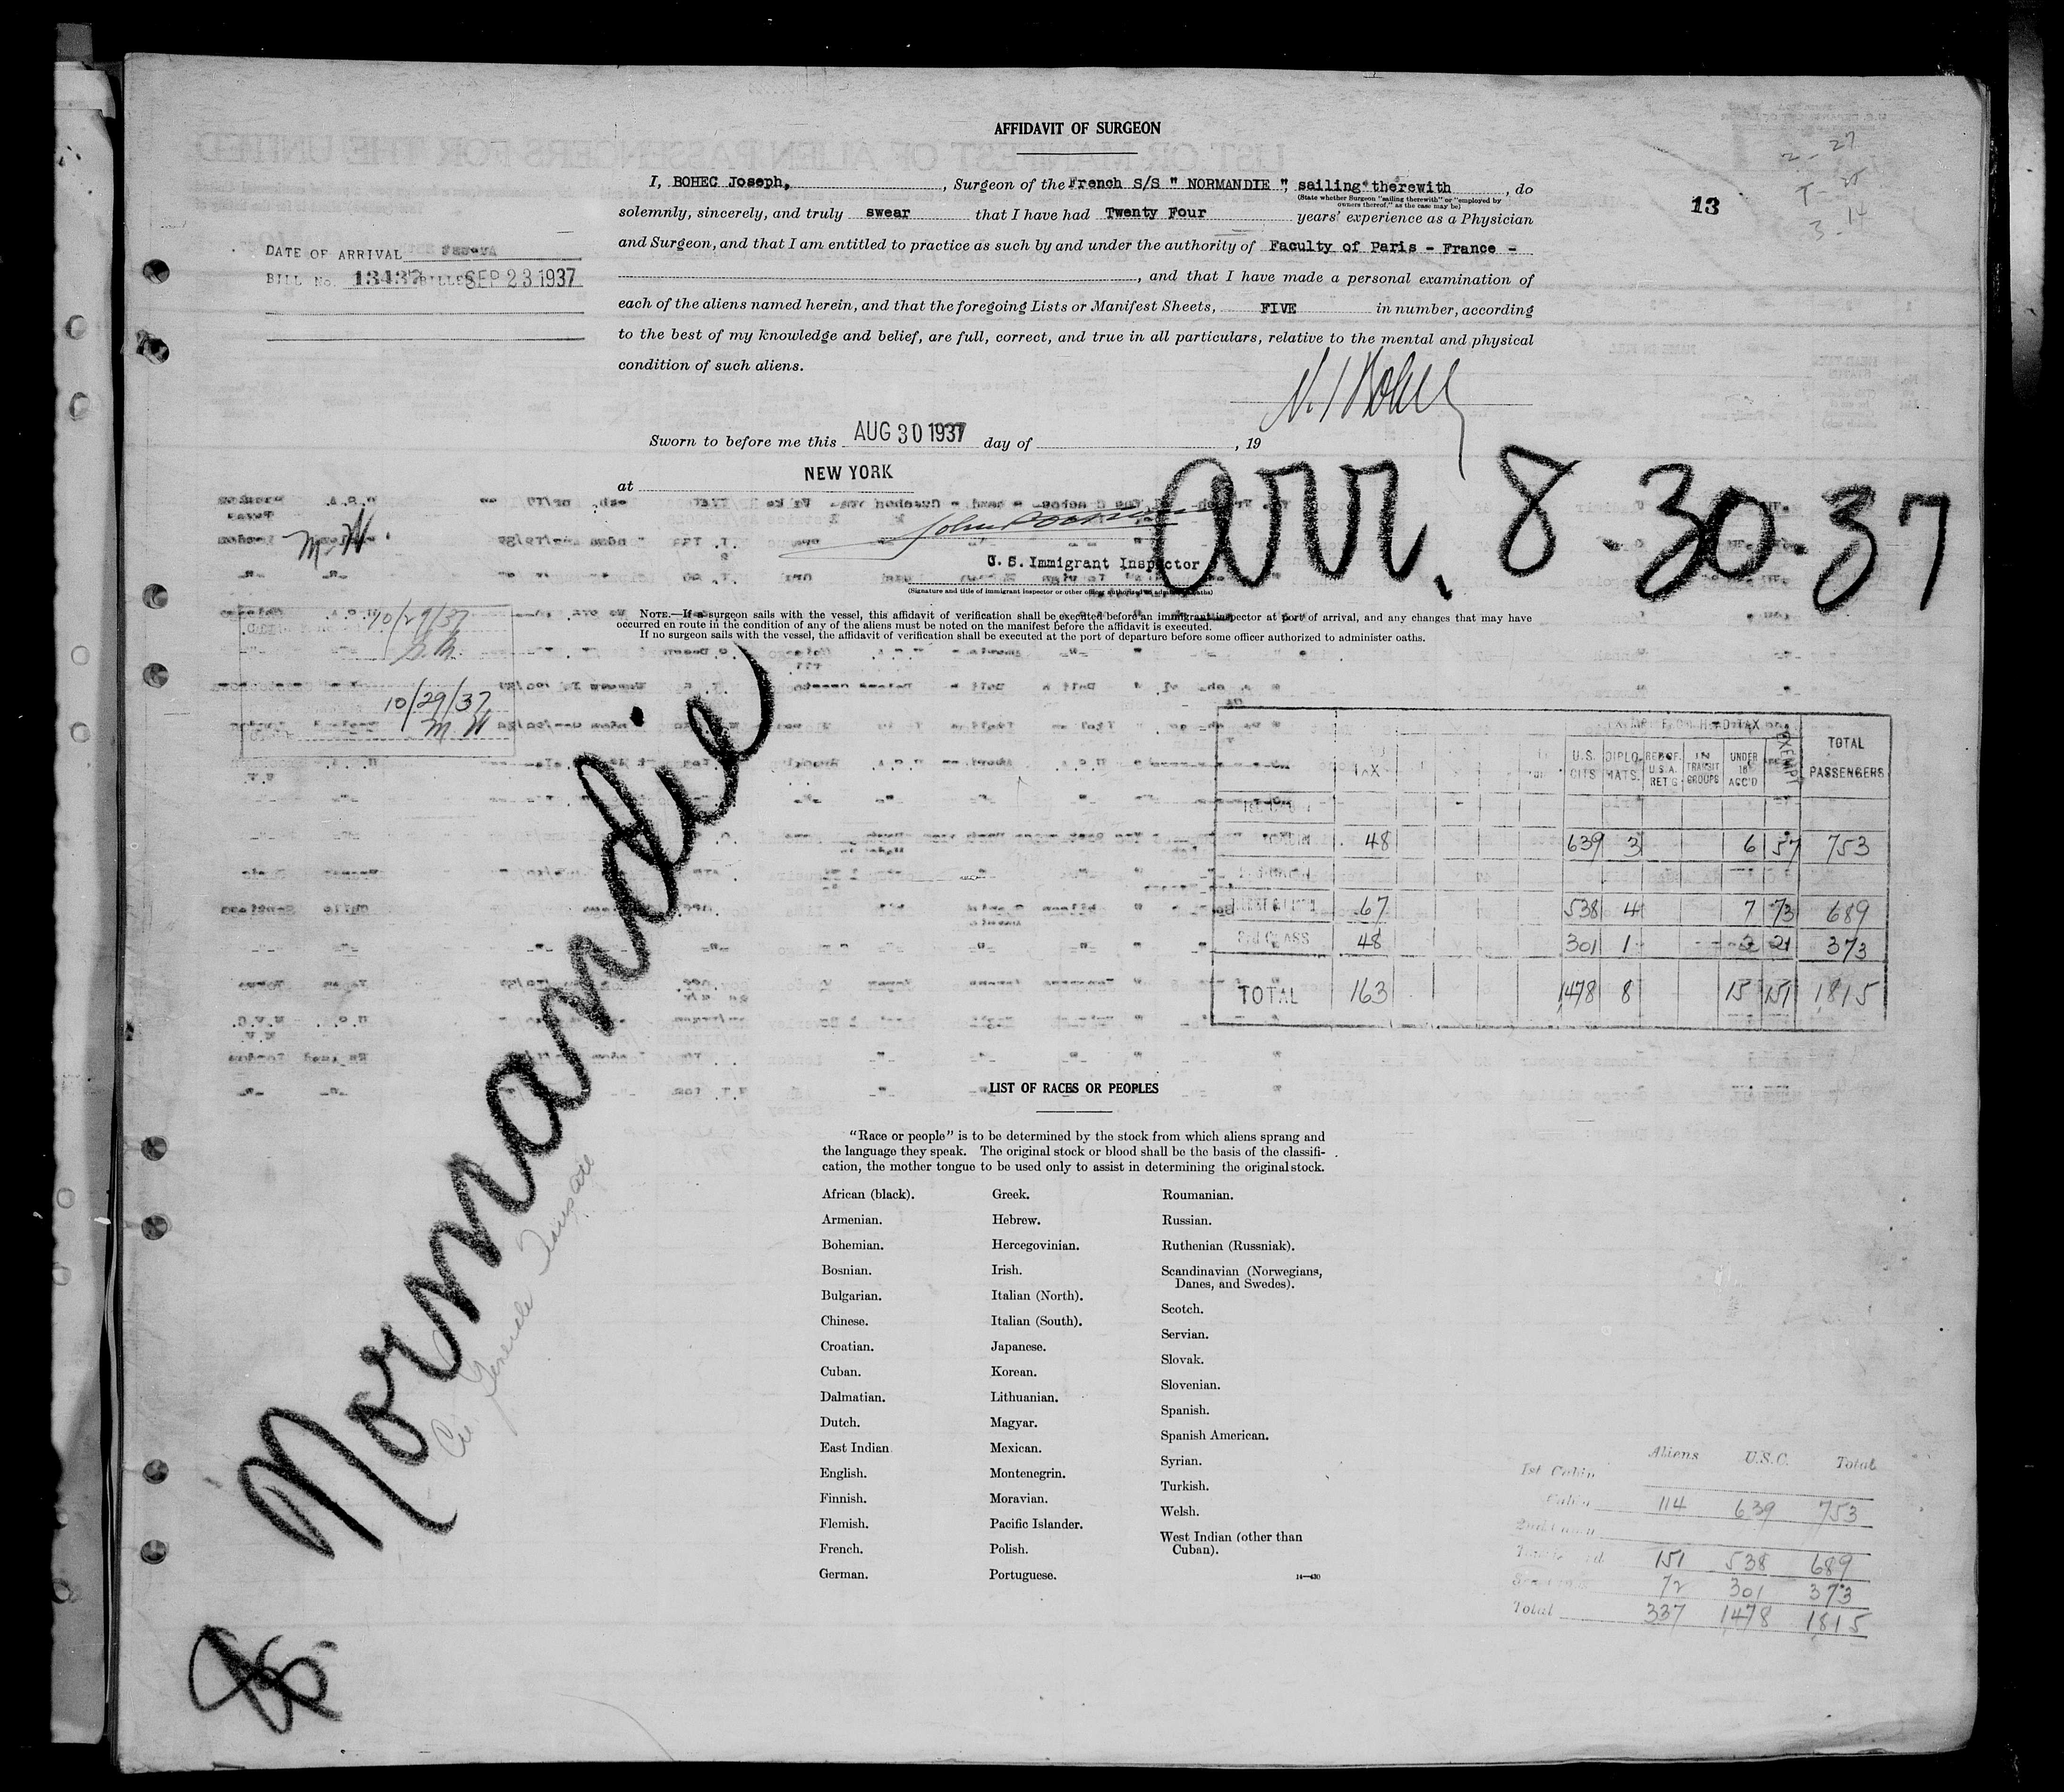 AFFIDAVIT OF SURGEON
I, BOHEC Joseph, , Surgeon of the French S/S " NORMANDIE ", sailing therewith , do
(State whether Surgeon "sailing therewith" or "employed by
owners thereof," as the case may be)
solemnly, sincerely, and truly swear that I have had Twenty Four years' experience as a Physician
and Surgeon, and that I am entitled to practice as such by and under the authority of Faculty of Paris - France -
, and that I have made a personal examination of
each of the aliens named herein, and that the foregoing Lists or Manifest Sheets, FIVE in number, according
to the best of my knowledge and belief, are full, correct, and true in all particulars, relative to the mental and physical
condition of such aliens.
13
2 - 27
3 - 14
DATE OF ARRIVAL
BILL No. 13437 BILLED SEP 23 1937
Sworn to before me this AUG 30 1937 day of , 19
at NEW YORK
arr. 8-30-37
U. S. Immigrant Inspector
(Signature and title of immigrant inspector or other officer authorized to administer oaths)
NOTE.—If a surgeon sails with the vessel, this affidavit of verification shall be executed before an immigrant inspector at port of arrival, and any changes that may have
occurred en route in the condition of any of the aliens must be noted on the manifest before the affidavit is executed.
If no surgeon sails with the vessel, the affidavit of verification shall be executed at the port of departure before some officer authorized to administer oaths.
M.W.
10/29/37
10/29/37
M W
Normandie
Cie Generale Transatl
TAX U.S. CITS DIPLO-MATS. IN TRANSIT GROUPS UNDER 16 ACC'D EXEMPT TOTAL PASSENGERS
48 639 3 6 57 753
67 538 4 7 73 689
3rd CLASS 48 301 1 2 21 373
TOTAL 163 1478 8 15 151 1815
LIST OF RACES OR PEOPLES
"Race or people" is to be determined by the stock from which aliens sprang and
the language they speak. The original stock or blood shall be the basis of the classifi-
cation, the mother tongue to be used only to assist in determining the original stock.
African (black).
Armenian.
Bohemian.
Bosnian.
Bulgarian.
Chinese.
Croatian.
Cuban.
Dalmatian.
Dutch.
East Indian
English.
Finnish.
Flemish.
French.
German.
Greek.
Hebrew.
Hercegovinian.
Irish.
Italian (North).
Italian (South).
Japanese.
Korean.
Lithuanian.
Magyar.
Mexican.
Montenegrin.
Moravian.
Pacific Islander.
Polish.
Portuguese.
Roumanian.
Russian.
Ruthenian (Russniak).
Scandinavian (Norwegians,
Danes, and Swedes).
Scotch.
Servian.
Slovak.
Slovenian.
Spanish.
Spanish American.
Syrian.
Turkish.
Welsh.
West Indian (other than
Cuban).
14—430
Aliens U.S.C. Total
1st Cabin
Cabin 114 639 753
151 538 689
72 301 373
Total 337 1478 1815